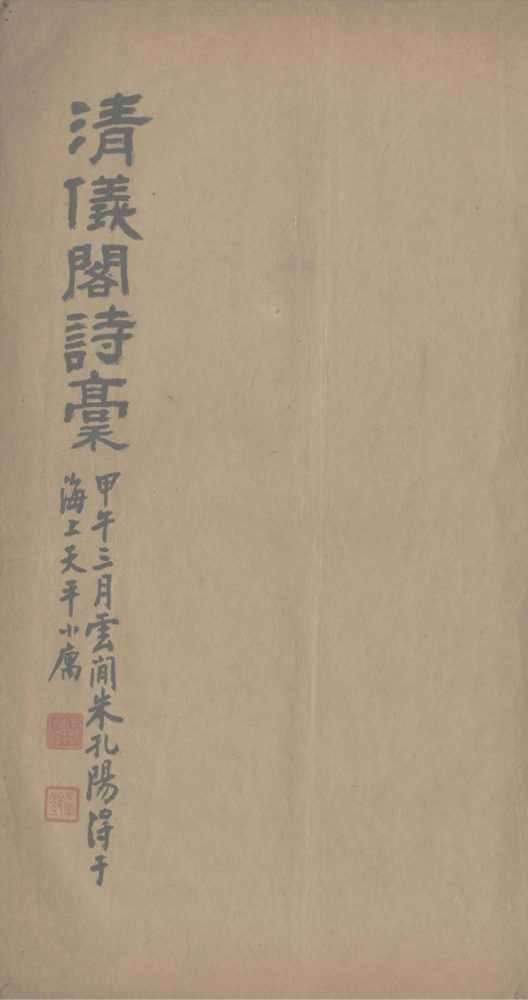 清儀閣詩稾
甲午三月雲間朱孔陽得于
海上天平小寓